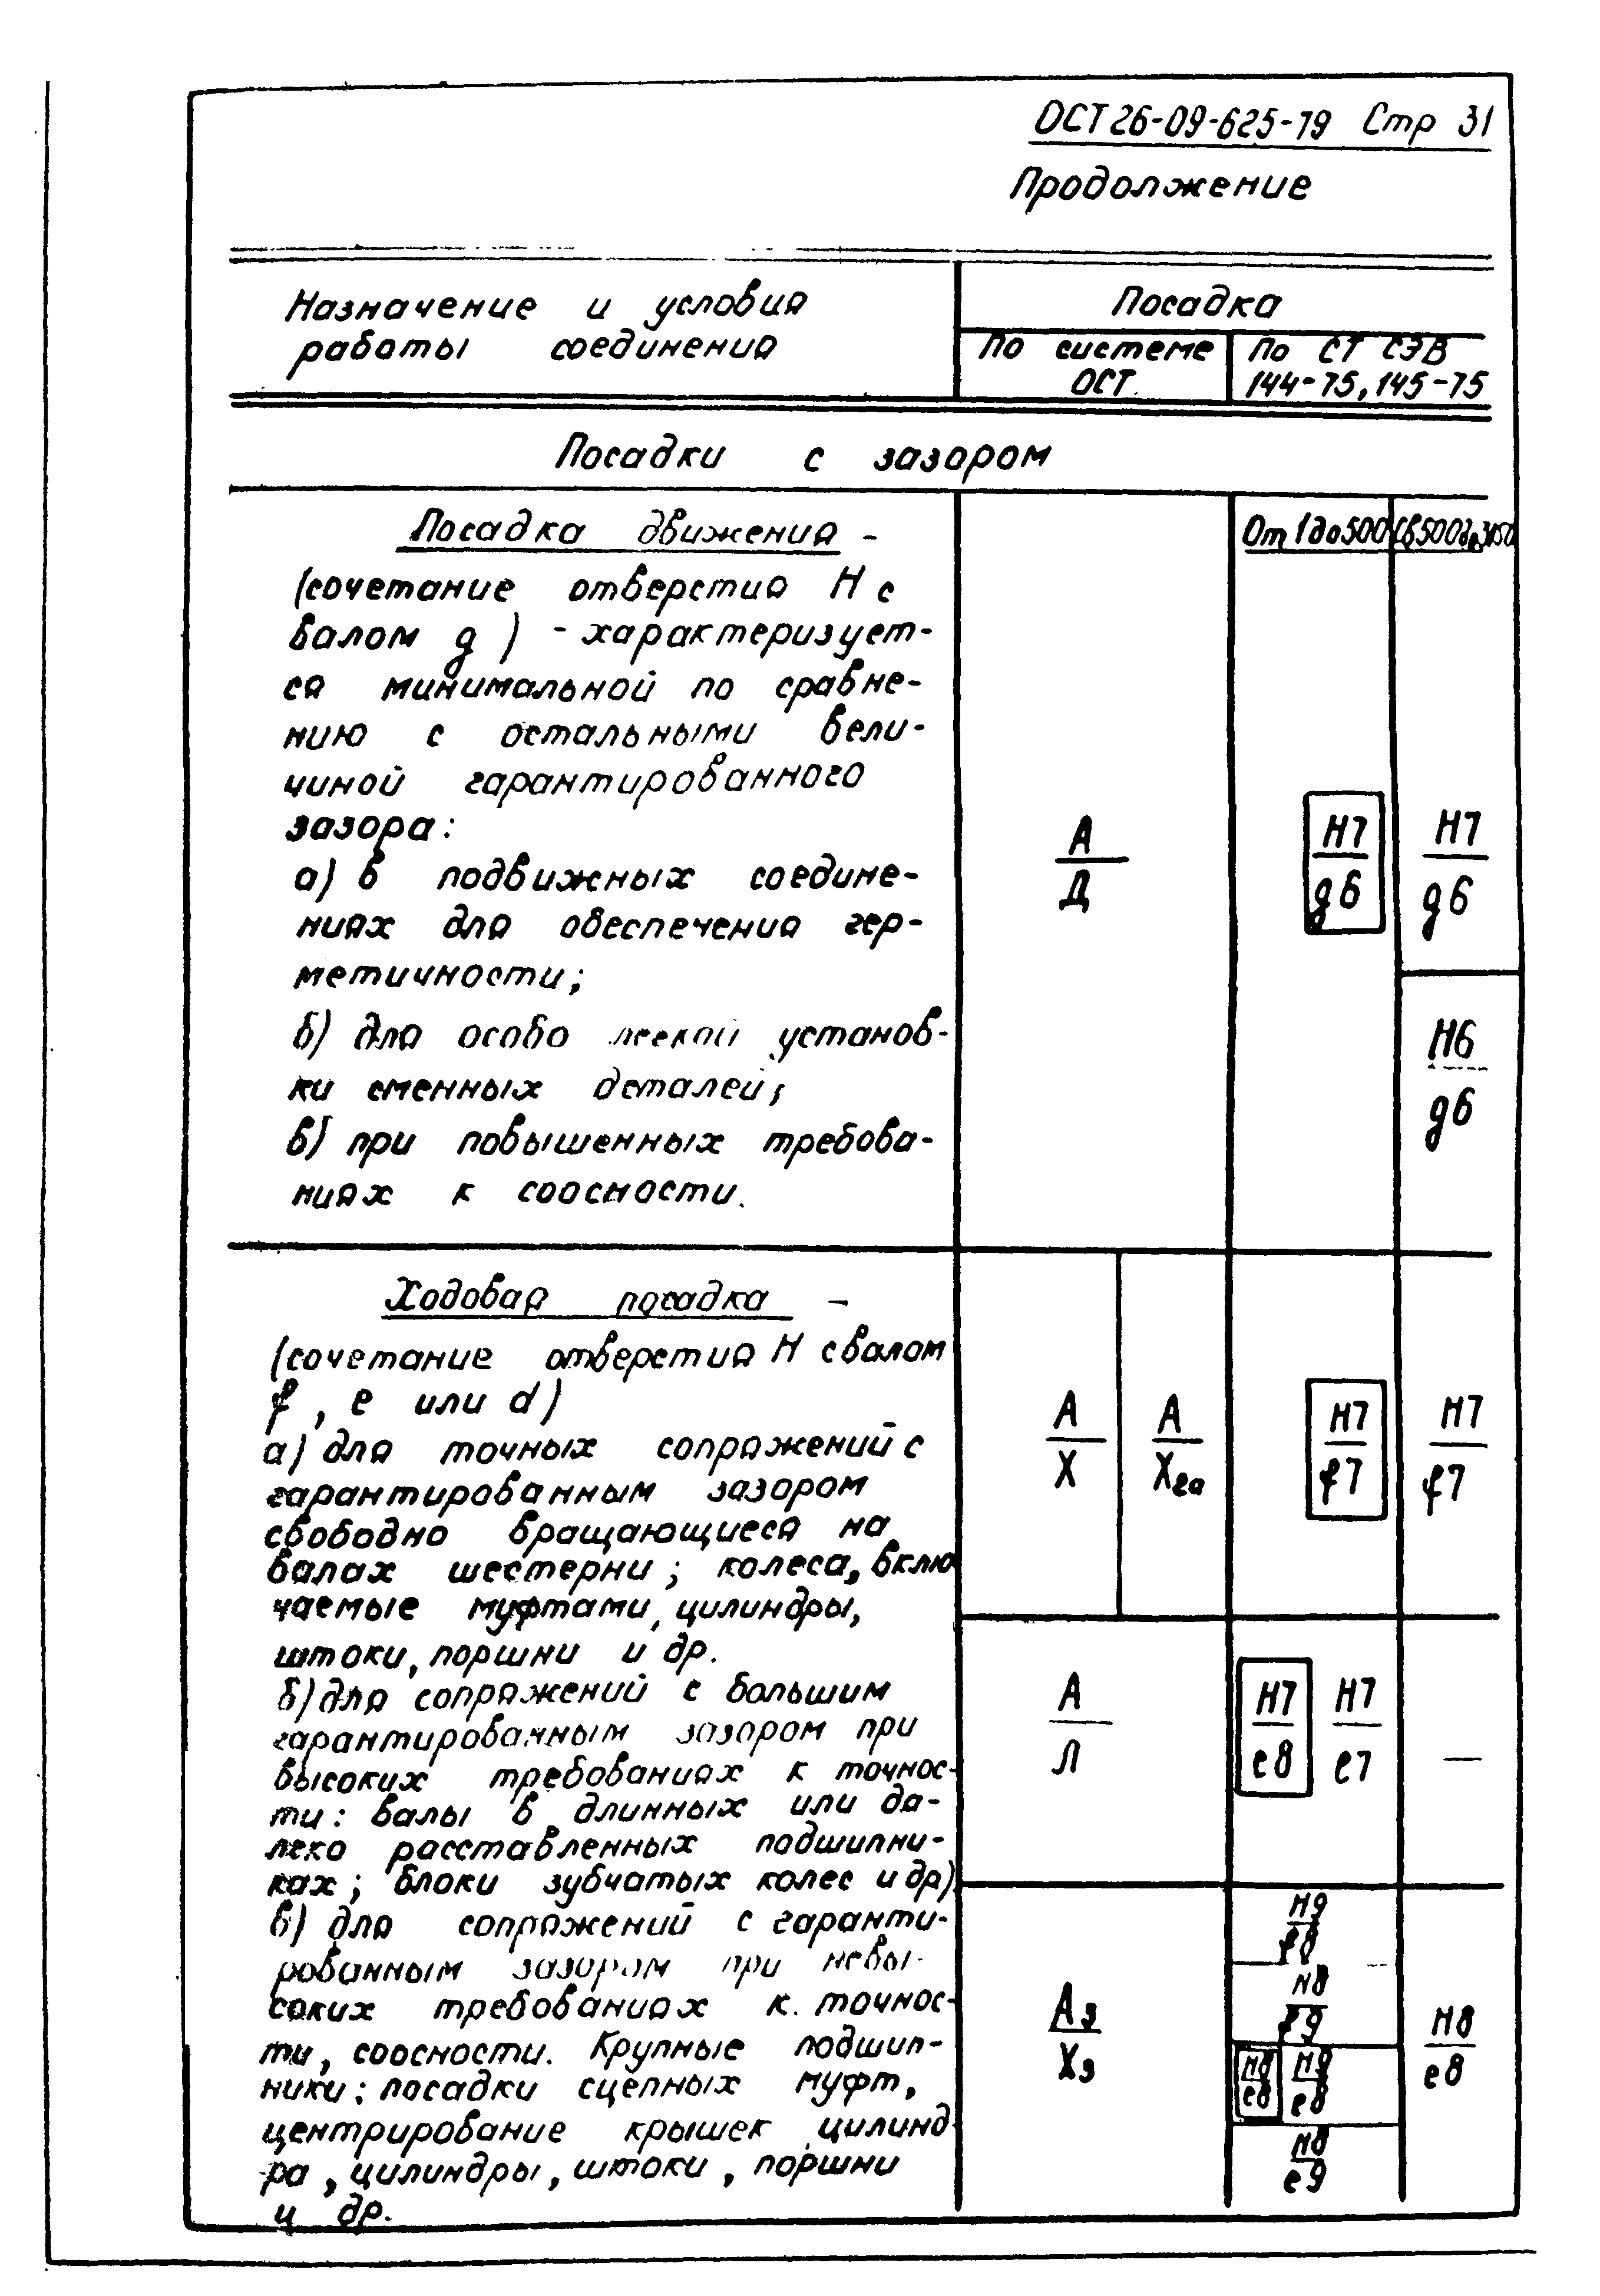 ОСТ 26-09-625-79 Стр 31
Продолжение
Назначение и условия
работы соединения
Посадка
По системе
ОСТ.
По СТ СЭВ
144-75, 145-75
Посадки с зазором
От 1 до 500
Св 500 до 3150
Посадка движения -
(сочетание отверстия H с
валом g ) - характеризует-
ся минимальной по сравне-
нию с остальными вели-
чиной гарантированного
зазора:
а) в подвижных соедине-
ниях для обеспечения гер-
метичности;
б) для особо легкой установ-
ки сменных деталей;
в) при повышенных требова-
ниях к соосности.
А
Д
H7
g6
H7
g6
H6
g6
Ходовая посадка -
(сочетание отверстия H с валом
f , e или d)
а) для точных сопряжений с
гарантированным зазором
свободно вращающиеся на
валах шестерни ; колеса, вклю
чаемые муфтами, цилиндры,
штоки, поршни и др.
б) для сопряжений с большим
гарантированным зазором при
высоких требованиях к точнос-
ти: валы в длинных или да-
леко расставленных подшипни-
ках; блоки зубчатых колес и др)
в) для сопряжений с гаранти-
рованным зазором при невы-
соких требованиях к. точнос-
ти, соосности. Крупные подшип-
ники; посадки сцепных муфт,
центрирование крышек цилинд
ра , цилиндры, штоки , поршни
и др.
А
Х
А
Х2а
H7
f7
H7
f7
А
Л
H7
e8
H7
e7
—
А3
Х3
H9
f8
H8
f9
H8
e8
H9
e8
H8
e9
H8
e8